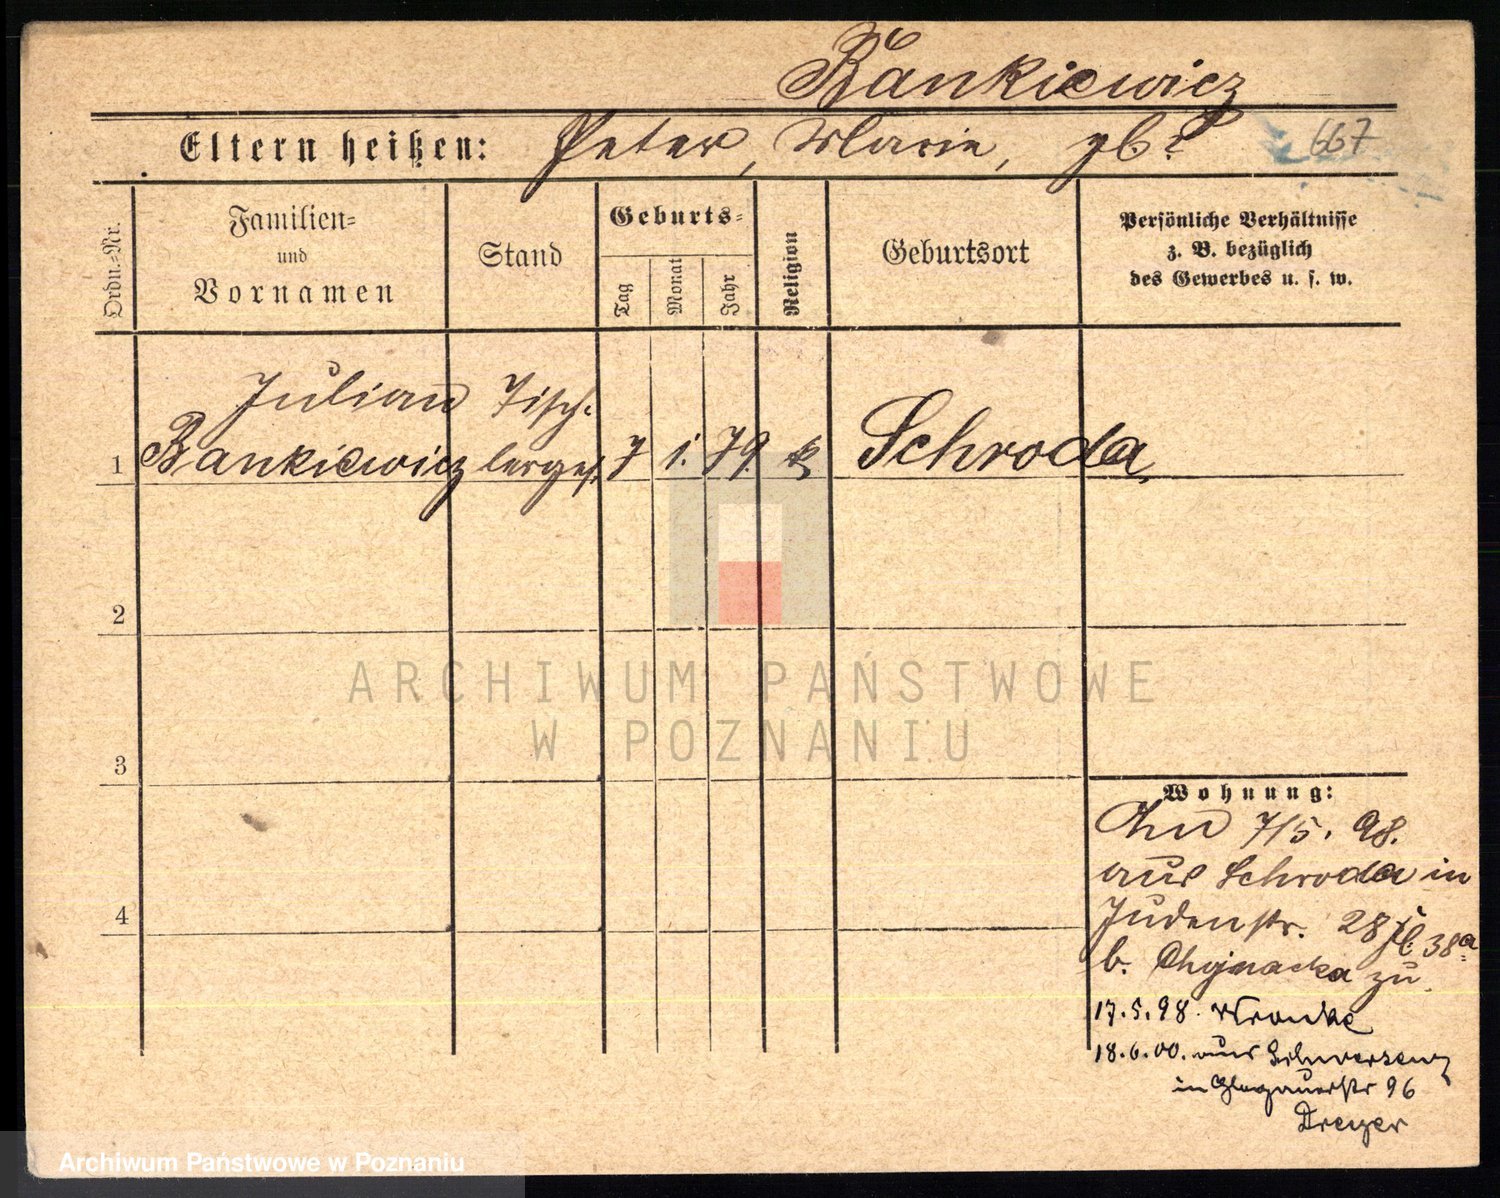 Bankiewicz
Eltern heißen: Peter, Marie, gb?
667
Ordn.=Nr.
Familien=
und
Vornamen
Stand
Geburts=
Tag
Monat
Jahr
Religion
Geburtsort
Persönliche Verhältnisse
z. B. bezüglich
des Gewerbes u. s. w.
Julian Tisch-
1 Bankiewicz lerges. 7 1. 79. k Schroda
2
3
4
Wohnung:
7/5. 98.
aus Schroda in
Judenstr. 28 38a
b. Chojnacka zu
17.5.98. Wronke
18.6.00. aus Schwersenz
in Glogauerstr 96
Dreyer
ARCHIWUM PAŃSTWOWE
W POZNANIU
Archiwum Państwowe w Poznaniu